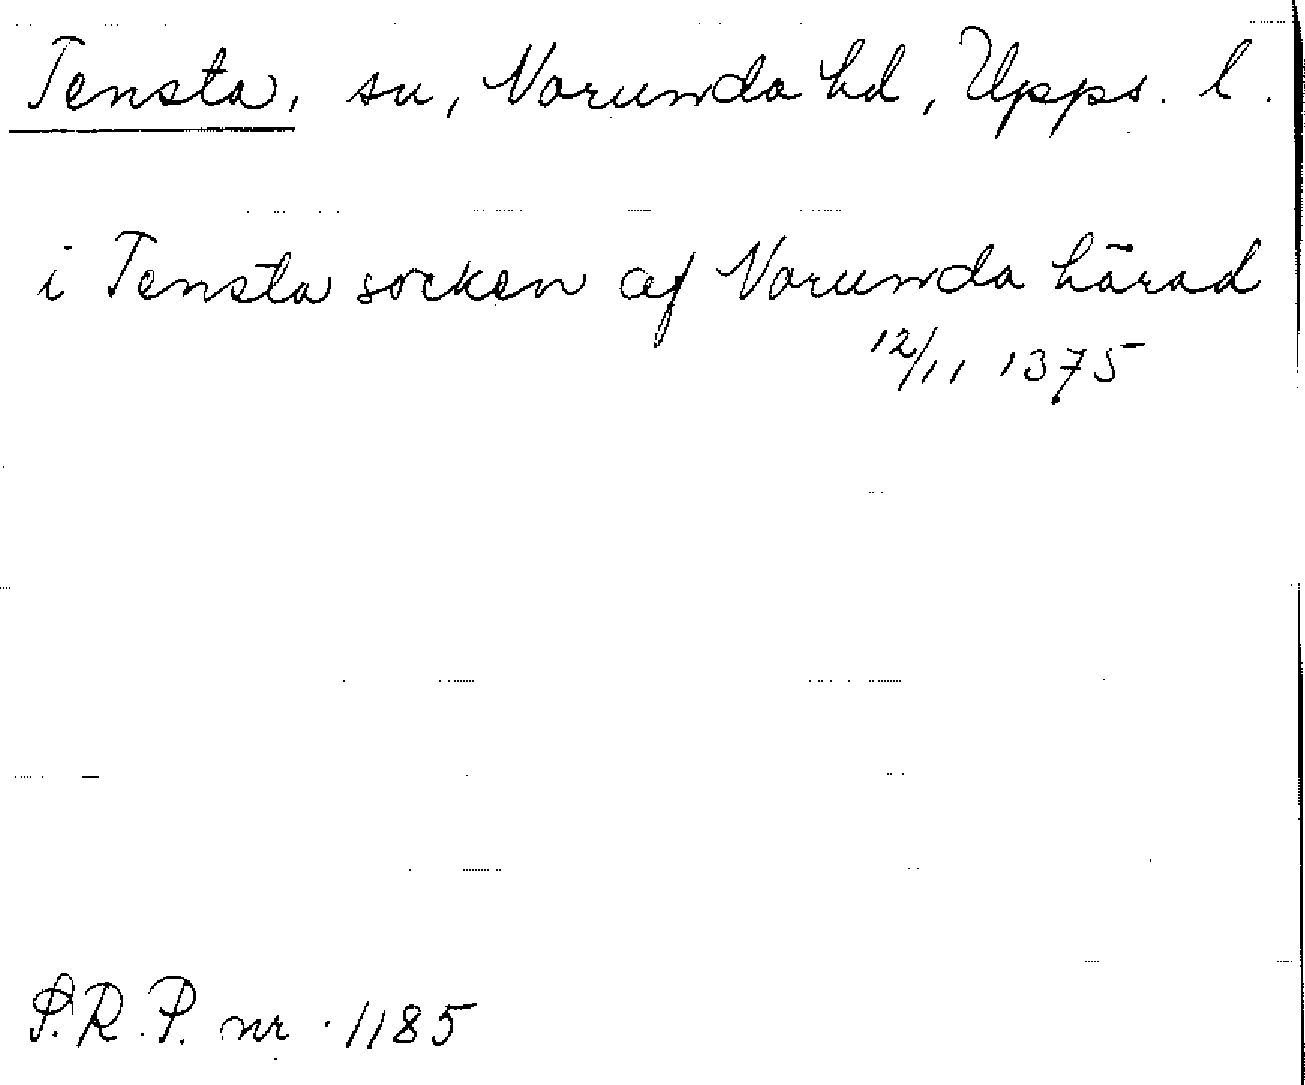 Tensta, sn, Norunda hd, Upps. l.
i Tensta socken af Norunda härad
12/11 1375
S.R.P. nr. 1185